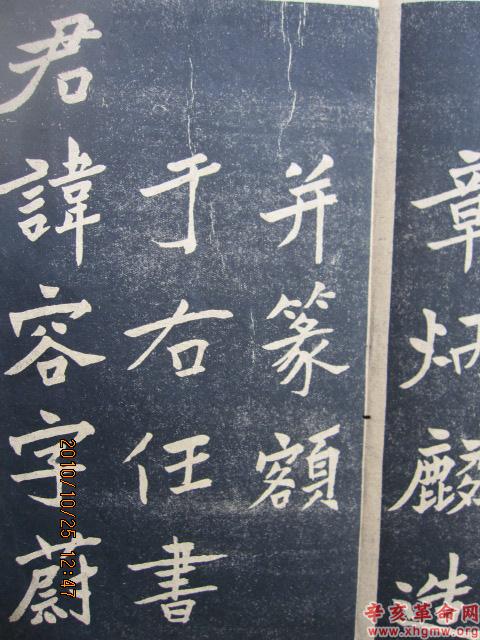 章炳麟造
并篆額
于右任書
君諱容字蔚
2010/10/25 12:47
辛亥革命网
www.xhgmw.org